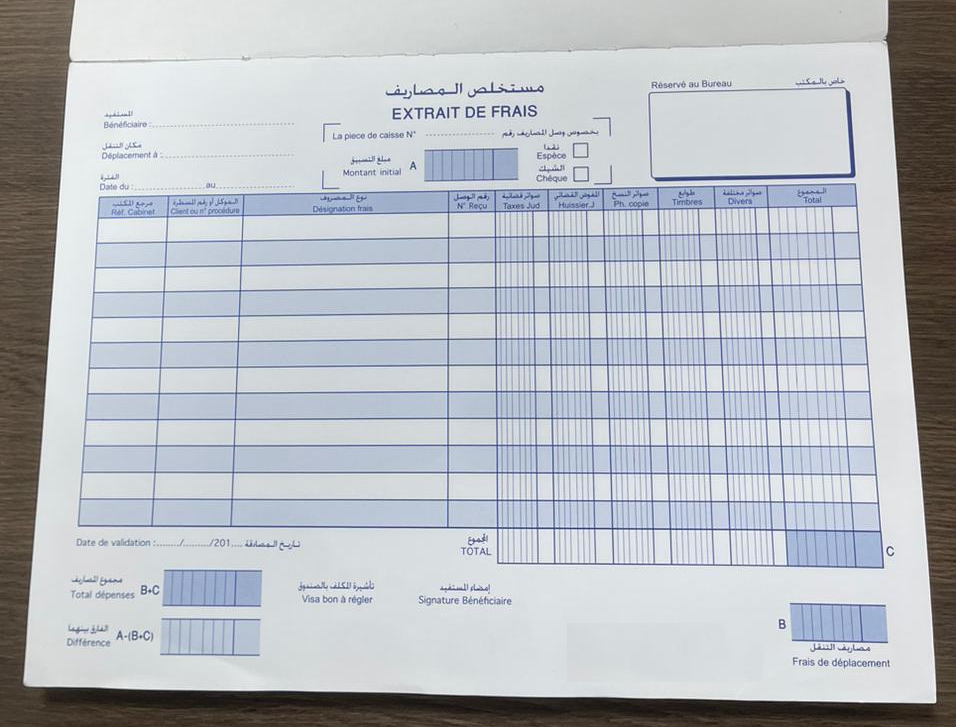 مستخلص المصاريف
EXTRAIT DE FRAIS
Réservé au Bureau خاص بالمكتب
المستفيد
Bénéficiaire :
مكان التنقل
Déplacement à :
الفترة
Date du : au
La piece de caisse N° بخصوص وصل المصاريف رقم
مبلغ التسبيق
Montant initial A
نقدا
Espèce
الشيك
Chéque
مرجع المكتب الموكل أو رقم المسطرة نوع المصروف رقم الوصل صوائر قضائية المفوض القضائي صوائر النسخ طوابع صوائر مختلفة المجموع
Réf. Cabinet Client ou n° procédure Désignation frais N° Reçu Taxes Jud Huissier.J Ph. copie Timbres Divers Total
Date de validation :......./......../201.... تاريخ المصادقة
المجموع
TOTAL C
مجموع المصاريف
Total dépenses B+C
تأشيرة المكلف بالصندوق
Visa bon à régler
إمضاء المستفيد
Signature Bénéficiaire
الفارق بينهما
Différence A-(B+C)
B
مصاريف التنقل
Frais de déplacement